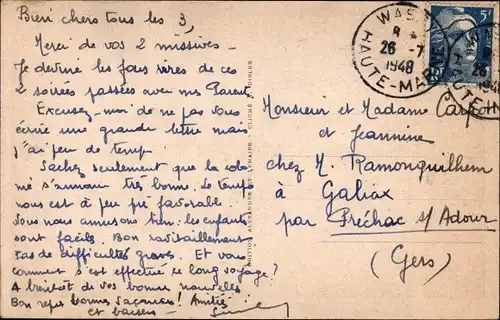 Bien chers tous les 3,
Merci de vos 2 missives -
Je devine les fous rires de ces
2 soirées passées avec mr Parent
Excusez-moi de ne pas vous
écrire une grande lettre mais
j'ai peu de temps
Sachez seulement que la colo
me s'annonce très bonne. Le temps
nous est à peu près favorable.
Nous nous amusons bien. les enfants
sont faciles. Bon ravitaillement
pas de difficultés graves. Et vous
comment s'est effectué ce long voyage?
A bientôt de vos bonnes nouvelles
Bon repos bonnes vacances! Amitiés
et baisers
WASSY
26 -7
1948
HAUTE-MARNE
5F
Monsieur et Madame
et Jeannine
chez M. Ramonguilhem
à Galiax
par Préchac s/ Adour
(Gers)